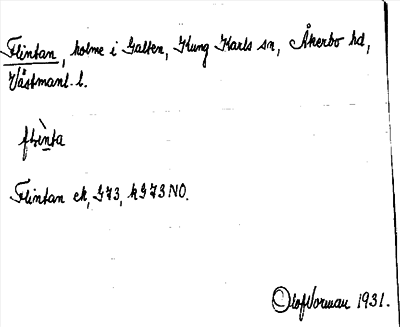 Flintan, holme i Galten, Kung Karls sn, Åkerbo hd,
Västmanl. l.
flìnta
Flintan ek, I73, k I73 NO.
Olof Norman 1931.